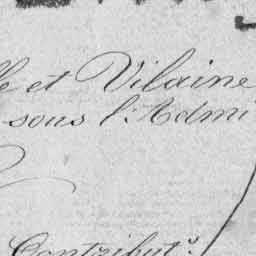 le et Vilaine
sous l'Admi
Contribut.